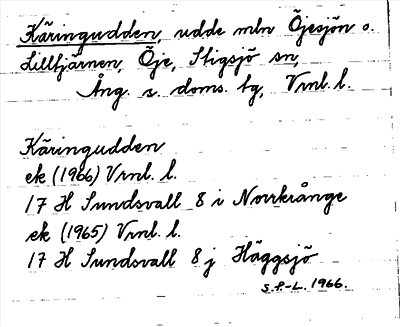 Käringudden, udde mln Öjesjön o.
Lilltjärnen, Öje, Stigsjö sn,
Ång. s. doms. tg, Vrnl. l.
Käringudden
ek (1966) Vrnl. l.
17 H Sundsvall 8 i Norrkrånge
ek (1965) Vrnl. l.
17 H Sundsvall 8 j Häggsjö
S.P-L. 1966.